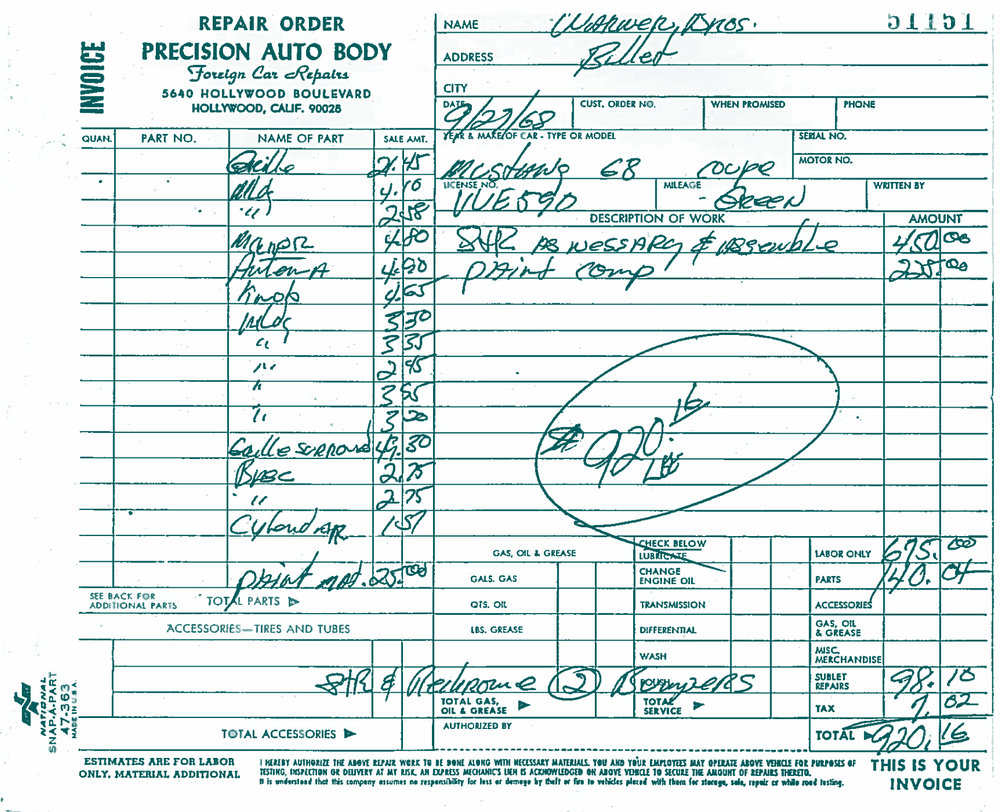 REPAIR ORDER
PRECISION AUTO BODY
Foreign Car Repairs
5640 HOLLYWOOD BOULEVARD
HOLLYWOOD, CALIF. 90028
INVOICE
51151
NAME Warner Bros.
ADDRESS Bullet
CITY
DATE 9/27/68 CUST. ORDER NO. WHEN PROMISED PHONE
YEAR & MAKE OF CAR - TYPE OR MODEL Mustang 68 coupe
SERIAL NO.
MOTOR NO.
LICENSE NO. VUE590 MILEAGE - Green WRITTEN BY
QUAN. PART NO. NAME OF PART SALE AMT.
DESCRIPTION OF WORK AMOUNT
Grille 21.45
Mldg 4.10
" 2.58
4.80
Antenna 4.90
Knob 4.65
Mldg 3.30
" 3.35
" 2.45
" 3.55
" 3.20
Grille Surround 43.30
2.75
" 2.75
1.57
paint mat. 25.00
S+R as nessary & assemble 450.00
paint comp 225.00
$ 920.16
SEE BACK FOR ADDITIONAL PARTS TOTAL PARTS
ACCESSORIES—TIRES AND TUBES
S+R & Rechrome (2) Bumpers
TOTAL ACCESSORIES
GAS, OIL & GREASE
GALS. GAS
QTS. OIL
LBS. GREASE
TOTAL GAS, OIL & GREASE
CHECK BELOW
LUBRICATE
CHANGE ENGINE OIL
TRANSMISSION
DIFFERENTIAL
WASH
POLISH
TOTAL SERVICE
LABOR ONLY 675.00
PARTS 140.04
ACCESSORIES
GAS, OIL & GREASE
MISC. MERCHANDISE
SUBLET REPAIRS 98.10
TAX 7.02
TOTAL 920.16
AUTHORIZED BY
NATIONAL
SNAP-A-PART
47-363
MADE IN U.S.A.
ESTIMATES ARE FOR LABOR ONLY, MATERIAL ADDITIONAL
I HEREBY AUTHORIZE THE ABOVE REPAIR WORK TO BE DONE ALONG WITH NECESSARY MATERIALS. YOU AND YOUR EMPLOYEES MAY OPERATE ABOVE VEHICLE FOR PURPOSES OF
TESTING, INSPECTION OR DELIVERY AT MY RISK. AN EXPRESS MECHANIC'S LIEN IS ACKNOWLEDGED ON ABOVE VEHICLE TO SECURE THE AMOUNT OF REPAIRS THERETO.
It is understood that this company assumes no responsibility for loss or damage by theft or fire to vehicles placed with them for storage, sale, repair or while road testing.
THIS IS YOUR INVOICE